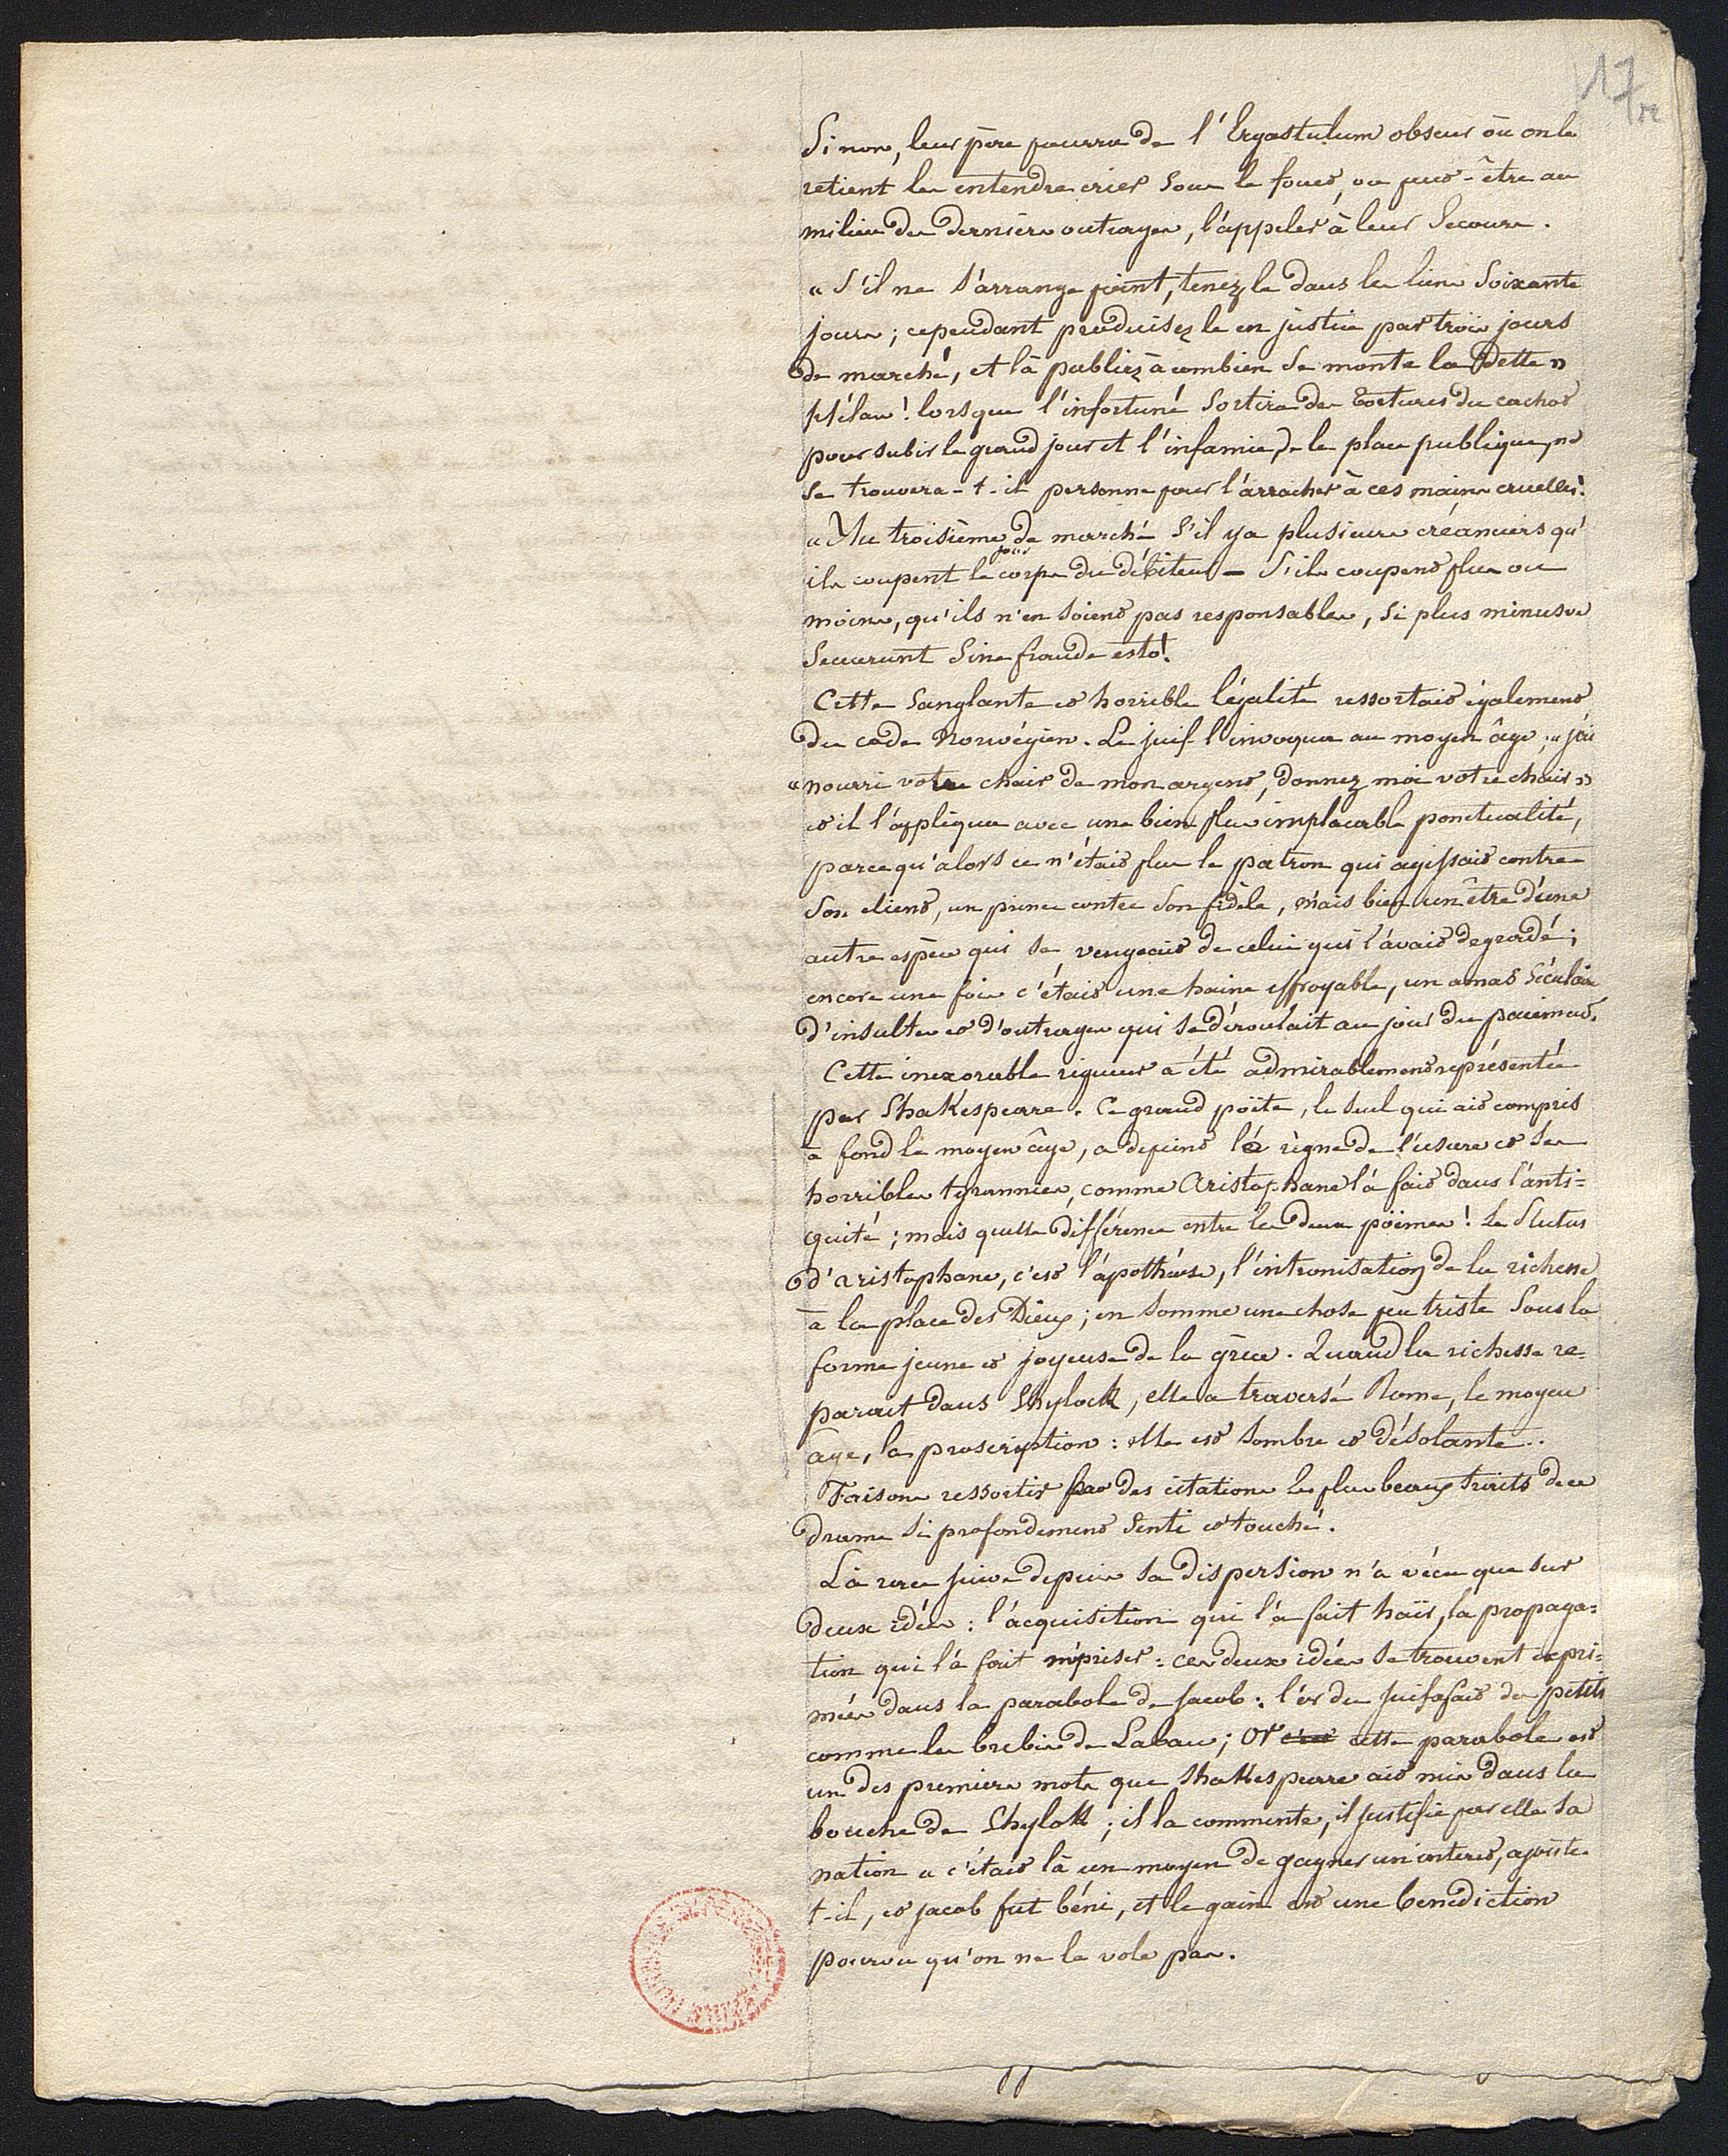 17
Sinon, leur père pourra de l'Ergastulum obscur où on le
retient les entendre crier sous le fouet, ou peut-être au
milieu des derniers outrages, l'appeler à leur secours.
« S'il ne s'arrange point, tenez le dans les liens soixante
jours; cependant produisez le en justice par trois jours
de marché, et là publiez à combien se monte la dette »
Hélas! lorsque l'infortuné sortira des tortures du cachot
pour subir le grand jour et l'infamie de la place publique, ne
se trouvera-t-il personne pour l'arracher à ces mains cruelles!
« Au troisième jour de marché s'il y a plusieurs créanciers qu'
ils coupent le corps du débiteur — S'ils coupent plus ou
moins, qu'ils n'en soient pas responsables, si plus minusve
secuerunt sine fraude esto!
Cette sanglante et horrible légalité ressortait également
du code Norwégien. Le juif l'invoqua au moyen âge; « j'ai
« nourri votre chair de mon argent, donnez moi votre chair »
et il l'appliqua avec une bien plus implacable ponctualité,
parce qu'alors ce n'était plus le patron qui agissait contre
son client, un prince contre son fidèle, mais bien un être d'une
autre espèce qui se vengeait de celui qui l'avait degradé;
encore une fois c'était une haine effroyable, un amas séculaire
d'insultes et d'outrages qui se déroulait au jour du paiement.
Cette inexorable rigueur a été admirablement représentée
par Shakespeare. Ce grand poëte, le seul qui ait compris
à fond le moyen âge, a depeint le règne de l'usure et ses
horribles tyrannies, comme Aristophane l'a fait dans l'anti=
quité; mais quelle différence entre les deux poëmes! Le Plutus
d'aristophane, c'est l'apothéose, l'intronisation de la richesse
à la place des Dieux; en somme une chose peu triste sous la
forme jeune et joyeuse de la grèce. Quand la richesse re=
parait dans Shylock, elle a traversé Rome, le moyen
âge, la proscription: elle est sombre et désolante..
Faisons ressortir par des citations les plus beaux traits de ce
drame si profondement senti et touché.
La race juive depuis sa dispersion n'a vécu que sur
deux idées: l'acquisition qui l'a fait haïr, la propaga=
tion qui l'a fait mépriser: ces deux idées se trouvent expri=
mées dans la parabole de Jacob: l'or du juif a fait des petits
comme les brebis de Laban; or cette parabole est
un des premiers mots que Shakespeare ait mis dans la
bouche de Shylock; il la commente, il justifie par elle sa
nation « c'était là un moyen de gagner un interet, ajoute-
t-il, et jacob fut béni, et le gain est une benediction
pourvu qu'on ne le vole pas.